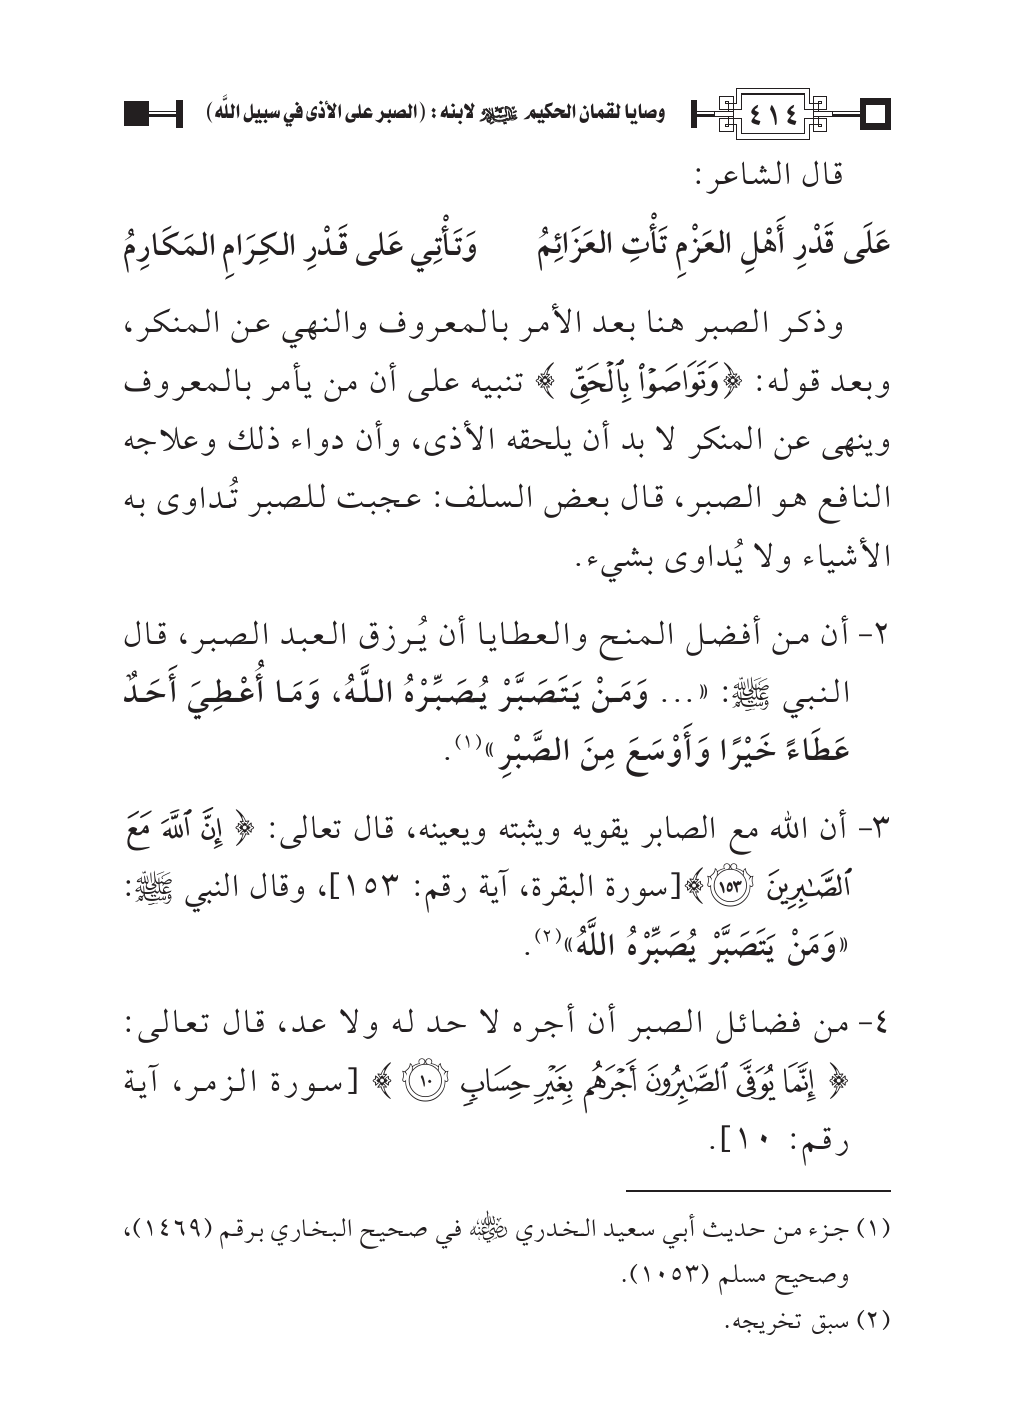 ٤١٤ وصايا لقمان الحكيم ﵇ لابنه : (الصبر على الأذى في سبيل اللَّه)
قال الشاعر:
عَلَى قَدْرِ أَهْلِ العَزْمِ تَأْتِ العَزَائِمُ وَتَأْتِي عَلى قَدْرِ الكِرَامِ المَكَارِمُ
وذكر الصبر هنا بعد الأمر بالمعروف والنهي عن المنكر،
وبعد قوله: ﴿وَتَوَاصَوۡاْ بِٱلۡحَقِّ ﴾ تنبيه على أن من يأمر بالمعروف
وينهى عن المنكر لا بد أن يلحقه الأذى، وأن دواء ذلك وعلاجه
النافع هو الصبر، قال بعض السلف: عجبت للصبر تُداوى به
الأشياء ولا يُداوى بشيء.
٢- أن من أفضل المنح والعطايا أن يُرزق العبد الصبر، قال
النبي ﷺ: «... وَمَنْ يَتَصَبَّرْ يُصَبِّرْهُ اللَّهُ، وَمَا أُعْطِيَ أَحَدٌ
عَطَاءً خَيْرًا وَأَوْسَعَ مِنَ الصَّبْرِ»(١).
٣- أن الله مع الصابر يقويه ويثبته ويعينه، قال تعالى: ﴿ إِنَّ ٱللَّهَ مَعَ
ٱلصَّٰبِرِينَ ١٥٣﴾[سورة البقرة، آية رقم: ١٥٣]، وقال النبي ﷺ:
«وَمَنْ يَتَصَبَّرْ يُصَبِّرْهُ اللَّهُ»(٢).
٤- من فضائل الصبر أن أجره لا حد له ولا عد، قال تعالى:
﴿ إِنَّمَا يُوَفَّى ٱلصَّٰبِرُونَ أَجۡرَهُم بِغَيۡرِ حِسَابٖ ١٠ ﴾ [سورة الزمر، آية
رقم: ١٠].
(١) جزء من حديث أبي سعيد الخدري ﵁ في صحيح البخاري برقم (١٤٦٩)،
وصحيح مسلم (١٠٥٣).
(٢) سبق تخريجه.